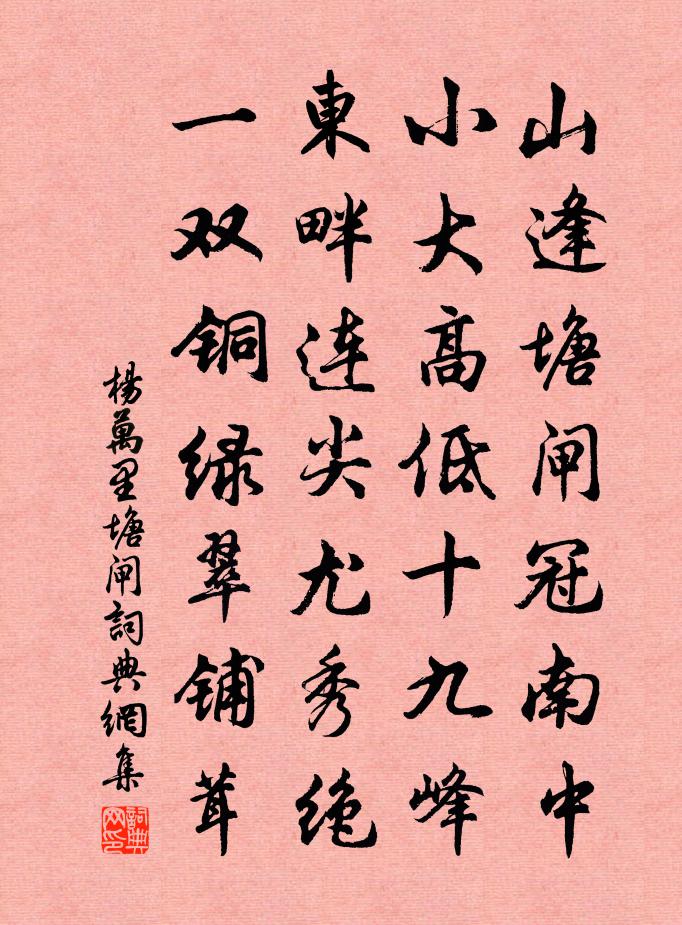 山逢塘闸冠南中
小大高低十九峰
東畔连尖尤秀绝
一双铜绿翠铺茸
楊萬里塘闸詞典網集
詞典
网印